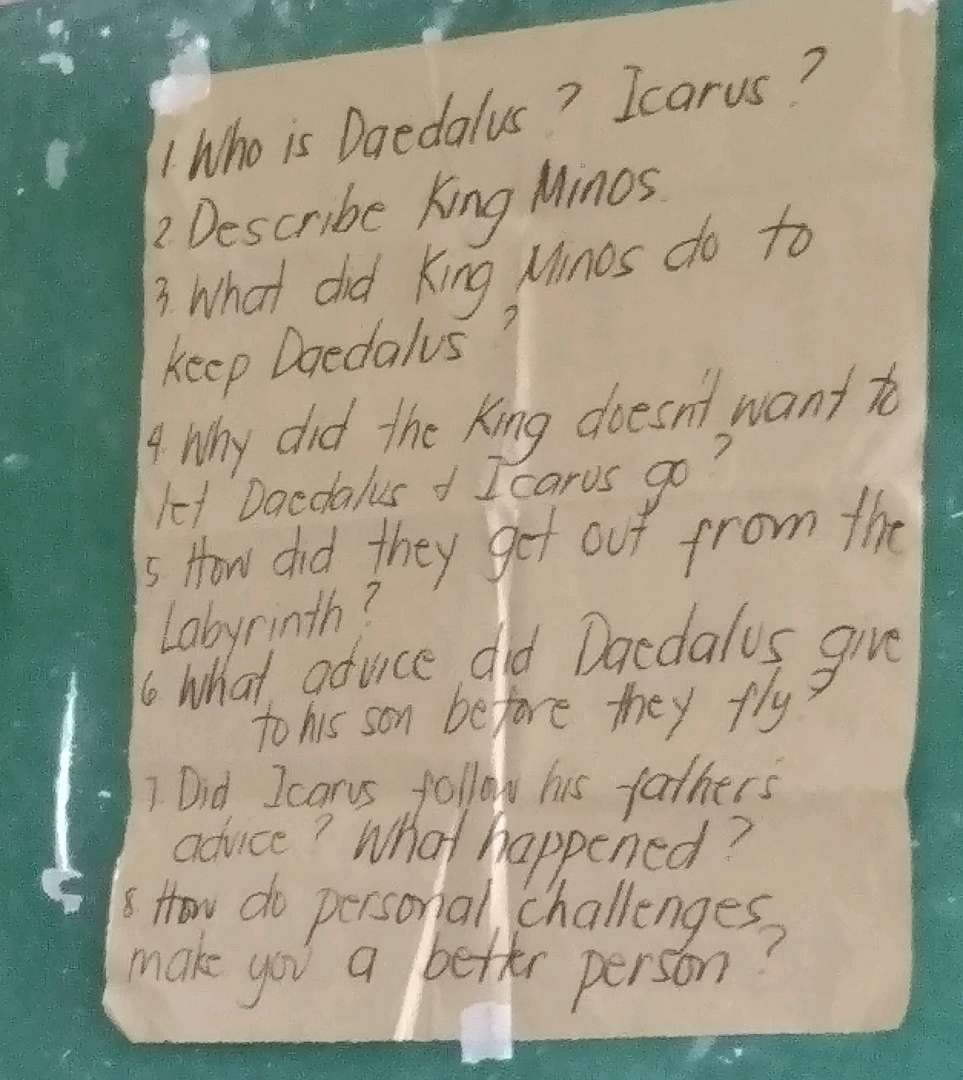 1. Who is Daedalus? Icarus?
2. Describe King Minos.
3. What did King Minos do to
keep Daedalus?
4. Why did the King doesn't want to
let Daedalus & Icarus go?
5 How did they get out from the
Labyrinth?
6 What advice did Daedalus give
to his son before they fly?
7 Did Icarus follow his father's
advice? What happened?
8. How do personal challenges
make you a better person?